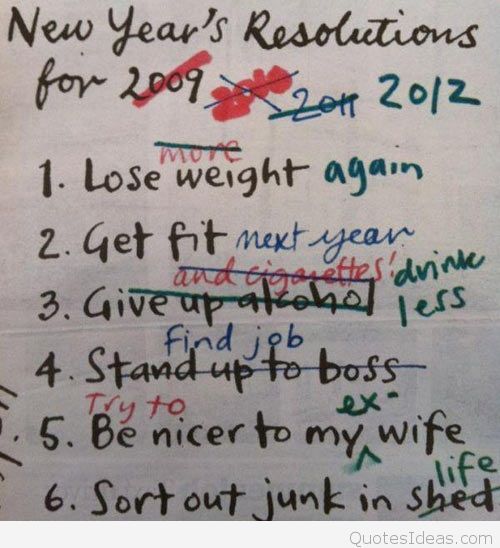 New Year's Resolutions
for 2009 2011 2012
more
1. Lose weight again
2. Get fit next year
and cigarettes! drink
3. Give up alcohol less
find job
4. Stand up to boss
Try to ex-
5. Be nicer to my wife
life
6. Sort out junk in shed
QuotesIdeas.com